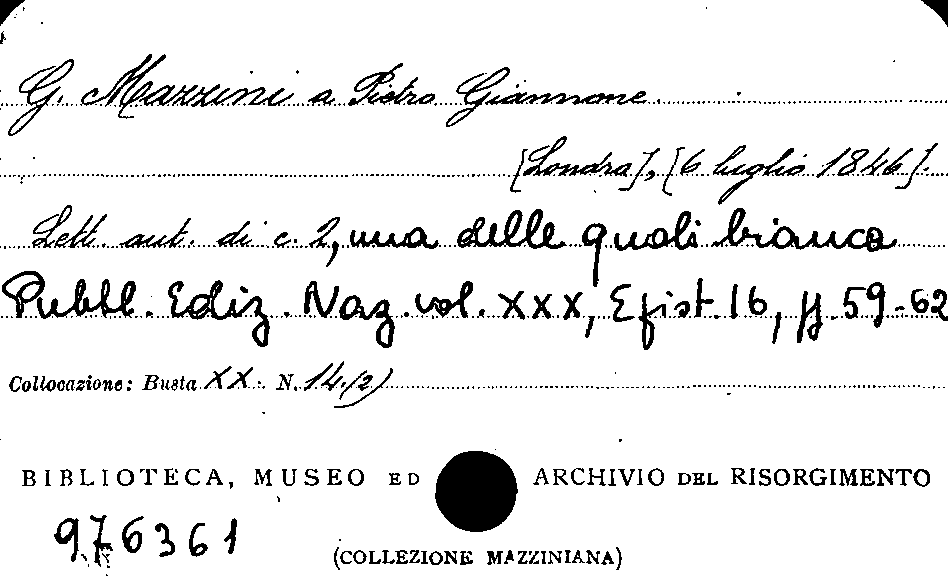 G. Mazzini a Pietro Giannone
[Londra], [6 luglio 1846].
Lett. aut. di c. 2, una delle quali bianca
Pubbl. Ediz. Naz. vol. XXX, Epist. 16, pp. 59-62
Collocazione: Busta XX. N. 14.(2)
BIBLIOTECA, MUSEO ED ARCHIVIO DEL RISORGIMENTO
976361
(COLLEZIONE MAZZINIANA)